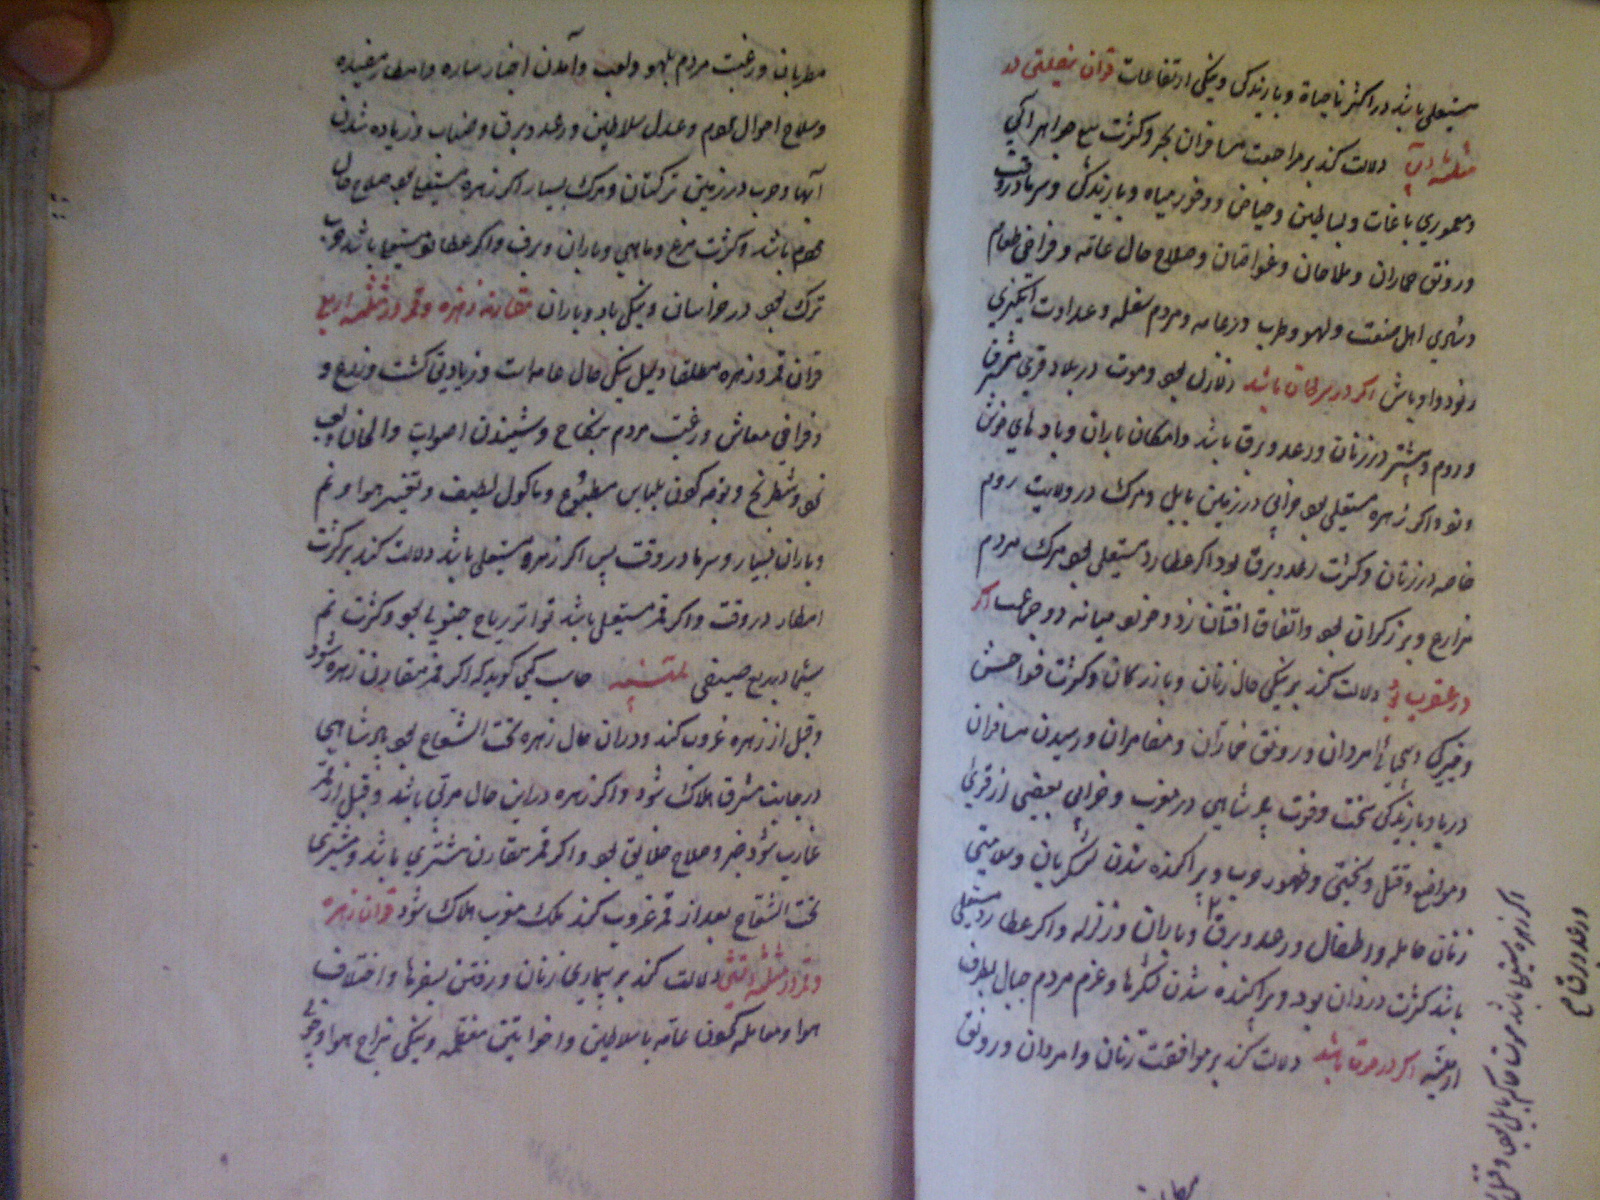 مستعلی باشد در اکثر ناحیاة و بارندکی و نیکی ارتفاعات قران سفلیتی در
مثلثه آبی دلالت کند بر مراجعت مسافران بحر و کثرت بیع جواهر آبی
و معموری باغات و بساطین و حیاض و وفور میاه و بارندکی و سرما در وقت
و رونق خماران و ملاحان و غواصان و صلاح حال عامه و فراخی طعام
اهل صنعت و لهو و طرب در عامه و مردم سفله و عداوت انکیزی
رنود و اوباش اکر در سرطان باشد زلازل بود و موت در بلاد قری مشرق
و روم و بیشتر در زنان و رعد و برق باشد و امکان باران و بادهای خوش
بود و اکر زهره مستعلی بود خرابی در زمین بابل و مرک در ولایت روم
خاصه در زنان و کثرت رعد و برق بود اکر عطارد مستعلی بود مرک مردم
مزارع و برزکران بود و اتفاق افتان زد و خورد میانه دو جماعت اکر
در عقرب بود دلالت کند بر نیکی حال زنان و بازرکان و کثرت فواحش
و خیرکی و امردان و رونق خماران و مقامران و رسیدن مسافران
دریا و بارندکی سخت و فوت پادشاهی در مغرب و خرابی بعضی از قری
و مواضع و قتل و سختی و ظهور حرب و پراکنده شدن لشکریان و سلامتی
زنان حامله و اطفال و رعد و برق و باران و زلزله و اکر عطارد مستعلی
باشد کثرت دزدان بود و پراکنده شدن لشکرها و عزم مردم جبال بطرف
ارمنیه اکر در حوت باشد دلالت کند بر موافقت زنان و امردان و رونق
اکر زهره مستعلی باشد موت حاکم بابل بود و قتل
و رعد و برق
مطربان
مطربان و رغبت مردم بلهو و لعب و آمدن اخبار ساره و امطار مفیده
و صلاح احوال عموم و عدل سلاطین و رعد و برق و ضباب و زیاده شدن
آبها و حرب در زمین ترکستان و مرک بسیار اکر زهره مستعلی بود صلاح حال
عموم باشد و کثرت مرغ و ماهی و باران و برف و اکر عطارد مستعلی باشد حرب
ترک بود در خراسان و نیکی باد و باران مقارنه زهره و قمر در مثلثه اربع
قران قمر و زهره مطلقا دلیل نیکی حال عامه است و زیادتی کشت و زرع و
و فراخی معاش و رغبت مردم بر نکاح و شنیدن اصوات و الحان و لعب
نرد و شطرنج و توجه کردن بلباس مطبوع و ماکول لطیف و تغییر هوا و نم
و باران بسیار و سرما در وقت پس اکر زهره مستعلی باشد دلالت کند بر کثرت
امطار در وقت و اکر قمر مستعلی باشد تواتر ریاح جنوبی بود و کثرت نم
سیما در ربع صیفی تنبیه صاحب کیی کوید که اکر قمر مقارن زهره شود
و قبل از زهره غروب کند و در آن حال زهره تحت الشعاع بود پادشاهی
در جانب مشرق هلاک شود و اکر زهره در این حال مرئی باشد و قبل از قمر
غارب شود خیر و صلاح خلایق بود و اکر قمر مقارن مشتری باشد و مشتری
تحت الشعاع بعد از قمر غروب کند ملک مغرب هلاک شود قران زهره
و قمر در مثلثه آتشی دلالت کند بر بیماری زنان و رفتن بسفرها و اختلاف
هوا و معامله کردن عامه با سلاطین و خواتین معظمه و نیکی مزاج هوا